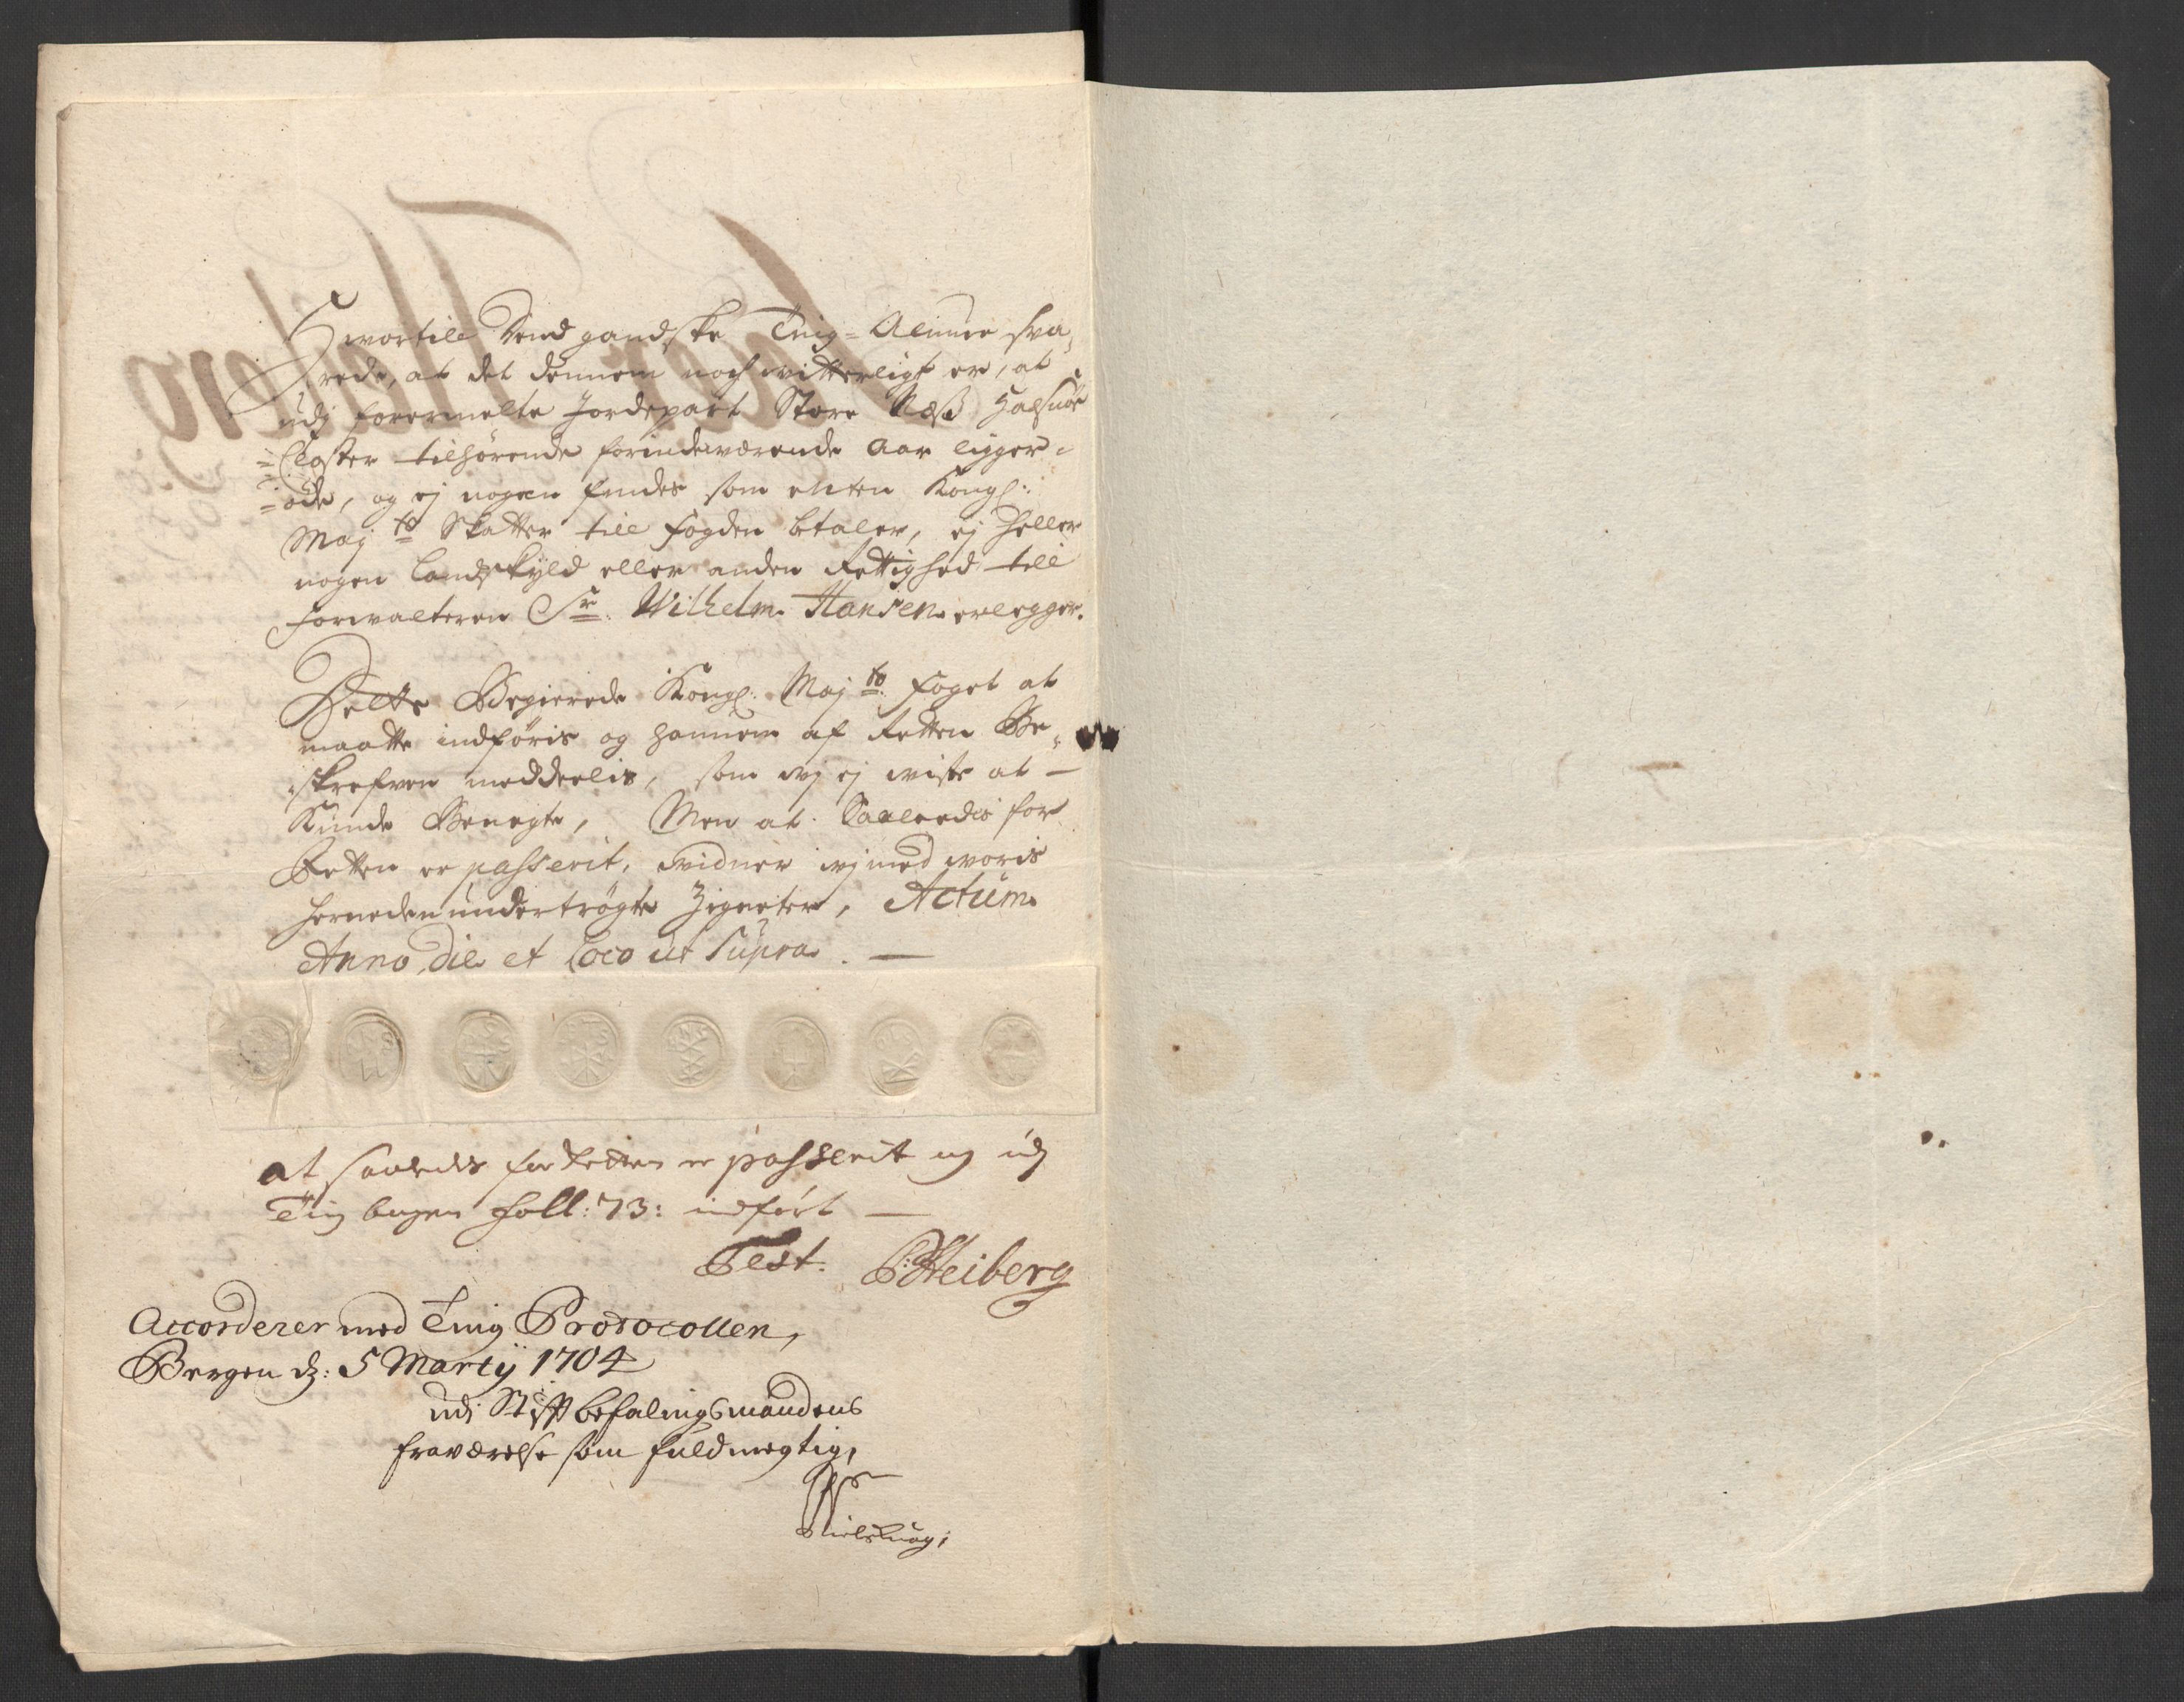 Hvortill dend gandske Ting-Almue sva-
rede, at det dennem noch vitterligt er, at
udj forermelte Jordepart Store Næss Halsnøe
Closter tilhørende forindeværende Aar ligger
øde, og ej nogen findes som enten Kongl:
Maj:ts Skatter till fogden betaler, ej heller
nogen Landskyld eller anden Rettighed till
forvalteren Sr. Wilhelm Hansen erlegger.
Dette Begierede Kongl: Maj:ts foget at
maatte indføris og hannem af Retten Be-
skrefven meddeelis, som vj ej viste at
Kunde Benegte, Men at Saaledis for
Retten er passerit, vidner vj med voris
herneden undertrøgte Zigneter, Actum
Anno die et loco ut Supra. —
at saaledis for Retten er passerit og udj
Tingbogen foll: 73: indført —
Test. P: Heiberg
Accorderer med Ting Protocollen,
Bergen d: 5 Martij 1704
udi Stiftbefalingsmandens
fraværelse som fuldmegtig,
Niels Knag;